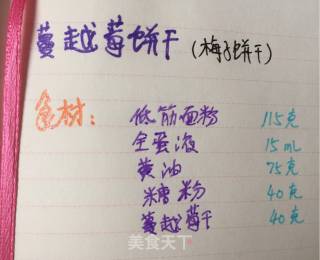 蔓越莓饼干(梅子饼干)
食材:
低筋面粉 115克
全蛋液 15mL
黄油 75克
糖粉 40克
蔓越莓干 40克
美食天下